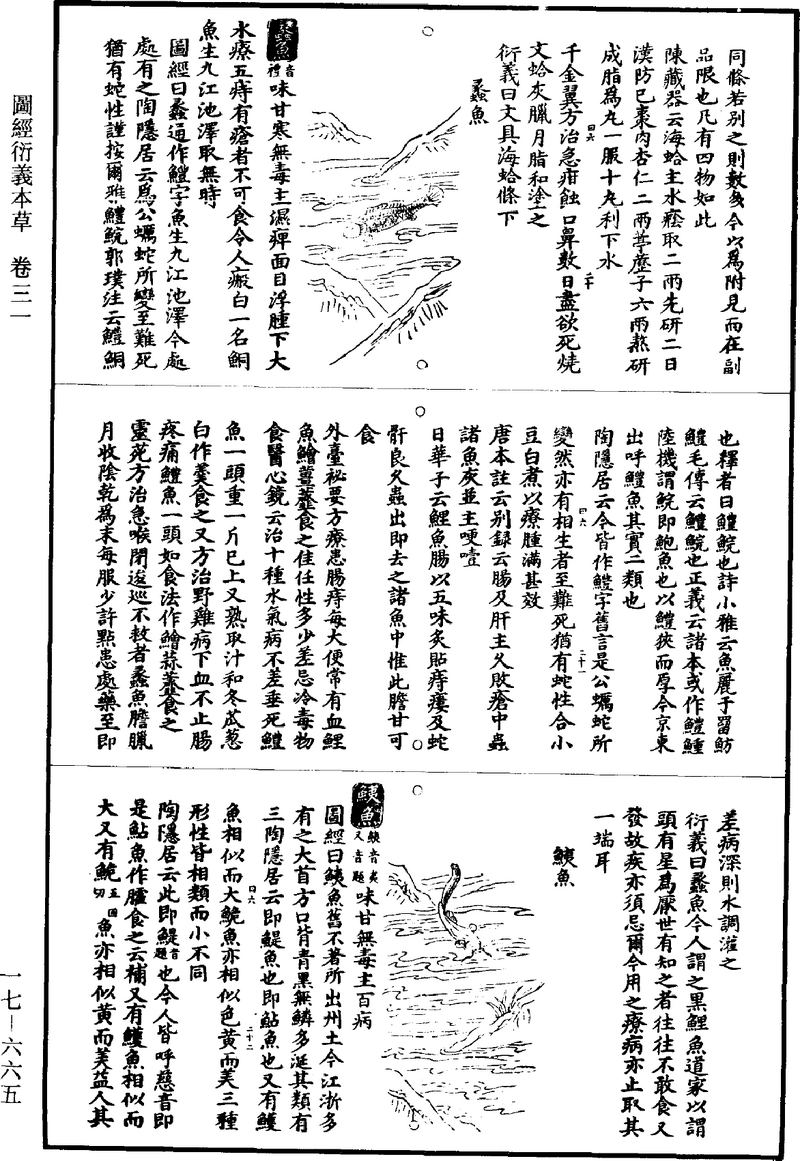 同條若別之則數多今以爲附見而在副
品限也凡有四物如此
陳藏器云海蛤主水癊取二兩先研二日
漢防巳棗肉杏仁二兩葶藶子六兩熬研
成脂爲丸一服十丸利下水
千金翼方治急疳蝕口鼻數日盡欲死燒
文蛤灰臘月脂和塗之
衍義曰文具海蛤條下
蠡魚
蠡魚音禮味甘寒無毒主濕痺面目浮腫下大
水療五痔有瘡者不可食令人瘢白一名鮦
魚生九江池澤取無時
圖經曰蠡通作鱧字魚生九江池澤今處
處有之陶隱居云爲公蠣蛇所變至難死
猶有蛇性謹按爾雅鱧鯇郭璞注云鱧鮦
也釋者曰鱧鯇也詩小雅云魚麗于罶魴
鱧毛傳云鱧鯇也正義云諸本或作鱧鯶
陸機謂鯇即鮑魚也以鱧狹而厚今京東
出呼鱧魚其實二類也
陶隱居云今皆作鱧字舊言是公蠣蛇所
變然亦有相生者至難死猶有蛇性合小
豆白煮以療腫滿甚效
唐本註云别録云腸及肝主久敗瘡中蟲
諸魚灰並主哽噎
日華子云鯉魚腸以五味炙貼痔瘻及蛇
骭良久蟲出即去之諸魚中惟此膽甘可
食
外臺祕要方療患腸痔每大便常有血鯉
魚鱠薑虀食之佳任性多少差忌冷毒物
食醫心鏡云治十種水氣病不差垂死鱧
魚一頭重一斤巳上又熟取汁和冬瓜葱
白作羹食之又方治野雞病下血不止腸
疼痛鱧魚一頭如食法作鱠蒜虀食之
靈苑方治急喉閉逡巡不救者蠡魚膽臘
月收陰乾爲末每服少許點患處藥至即
差病深則水調灌之
衍義曰蠡魚今人謂之黑鯉魚道家以謂
頭有星爲厭世有知之者往往不敢食又
發故疾亦須忌爾今用之療病亦止取其
一端耳
鮧魚
鮧魚鮧音夷又音題味甘無毒主百病
圖經曰鮧魚舊不著所出州土今江浙多
有之大首方口背青黑無鱗多涎其類有
三陶隱居云即鯷魚也即鮎魚也又有鱯
魚相似而大鮠魚亦相似色黄而美三種
形性皆相類而小不同
陶隱居云此即鯷音題也今人皆呼慈音即
是鮎魚作臛食之云補又有鱯魚相似而
大又有鮠五回切魚亦相似黄而美益人其
圖經衍義本草 卷三一
一七-六六五